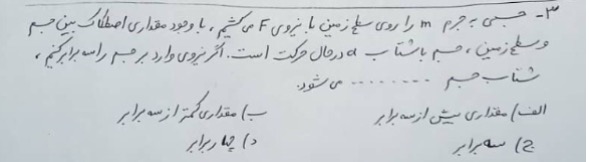 ۳- جسمی به جرم m را روی سطح زمین با نیروی F می‌کشیم، با وجود مقداری اصطکاک بین جسم
و سطح زمین، جسم با شتاب a در حال حرکت است. اگر نیروی وارد بر جسم را سه برابر کنیم،
شتاب جسم ......... می‌شود.
الف) مقداری بیش از سه برابر ب) مقداری کمتر از سه برابر
ج) سه برابر د) چهار برابر